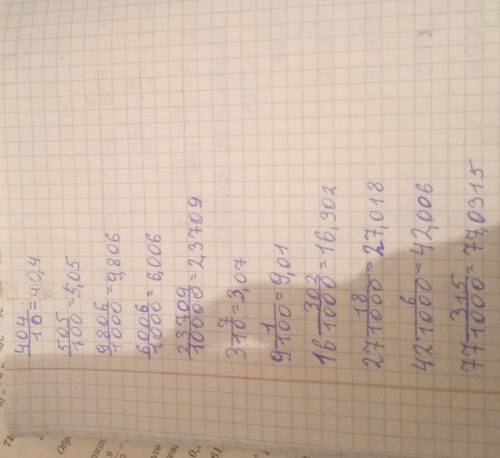 404/10=40,4
505/100=5,05
9806/1000=9,806
6006/1000=6,006
23709/10000=2,3709
3 7/10=3,07
9 1/100=9,01
16 302/1000=16,302
27 18/1000=27,018
42 6/1000=42,006
77 315/1000=77,0315